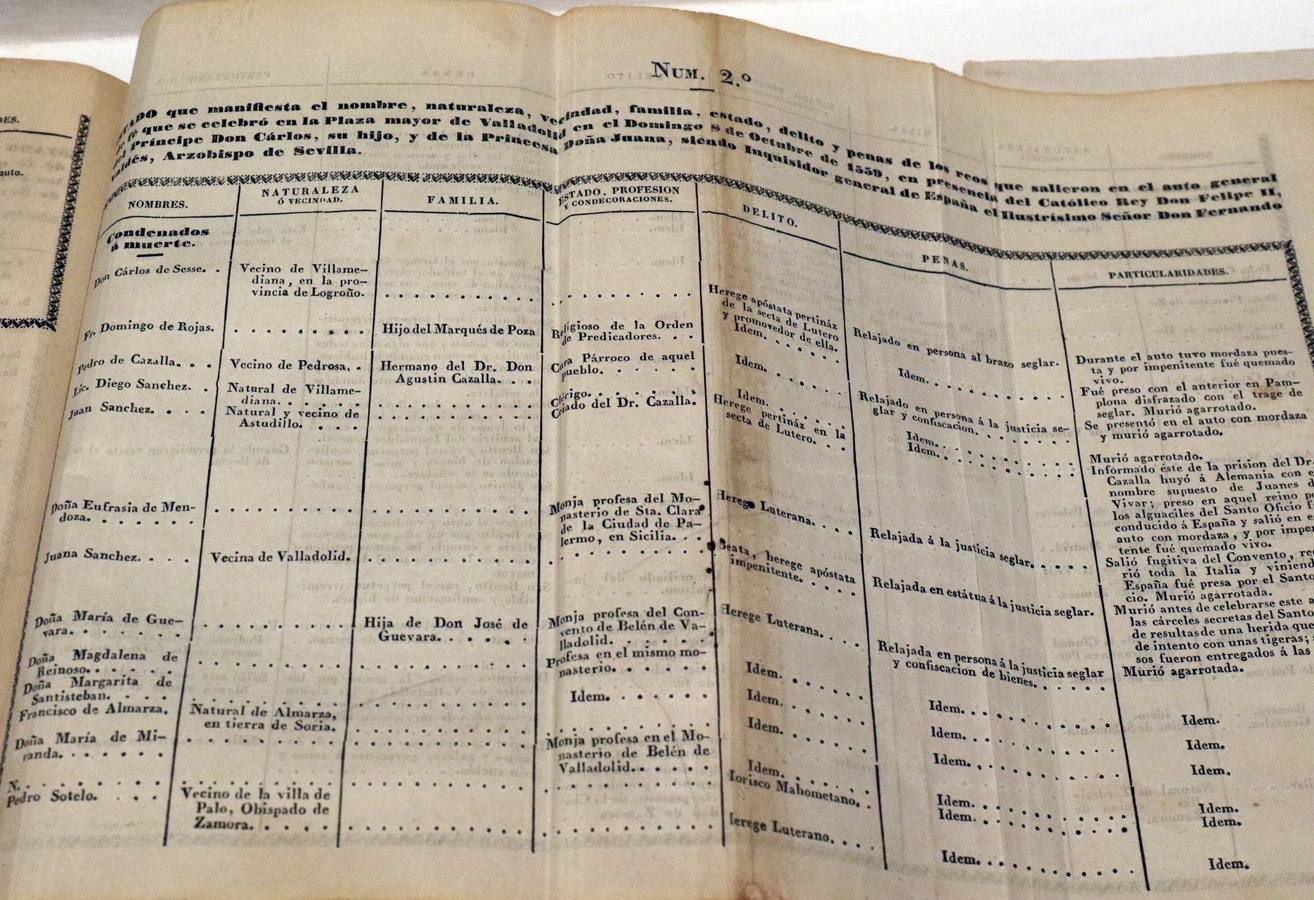 ES.
auto.
NUM. 2.º
ADO que manifiesta el nombre, naturaleza, vecindad, familia, estado, delito y penas de los reos que salieron en el auto general
fé que se celebró en la Plaza mayor de Valladolid en el Domingo 8 de Octubre de 1559, en presencia del Católico Rey Don Felipe II,
Príncipe Don Cárlos, su hijo, y de la Princesa Doña Juana, siendo Inquisidor general de España el Ilustrísimo Señor Don Fernando
Valdés, Arzobispo de Sevilla.
NOMBRES.
NATURALEZA
Ó VECINDAD.
FAMILIA.
ESTADO, PROFESION
Y CONDECORACIONES.
DELITO.
PENAS.
PARTICULARIDADES.
Condenados
á muerte.
Don Cárlos de Sesse. .
Vecino de Villame-
diana, en la pro-
vincia de Logroño.
Herege apóstata pertináz
de la secta de Lutero
y promovedor de ella.
Relajado en persona al brazo seglar.
Durante el auto tuvo mordaza pues-
ta y por impenitente fué quemado
vivo.
Fr. Domingo de Rojas.
Hijo del Marqués de Poza
Religioso de la Orden
de Predicadores. . .
Idem.
Idem.
Fué preso con el anterior en Pam-
plona disfrazado con el trage de
seglar. Murió agarrotado.
Pedro de Cazalla. . .
Vecino de Pedrosa. .
Hermano del Dr. Don
Agustin Cazalla. . .
Cura Párroco de aquel
pueblo.
Idem.
Relajado en persona á la justicia se-
glar y confiscacion.
Se presentó en el auto con mordaza
y murió agarrotado.
Lic. Diego Sanchez. .
Natural de Villame-
diana.
Clérigo.
Idem.
Idem.
Murió agarrotado.
Juan Sanchez.
Natural y vecino de
Astudillo.
Criado del Dr. Cazalla.
Herege pertináz en la
secta de Lutero.
Idem.
Informado éste de la prision del Dr.
Cazalla huyó á Alemania con e
nombre supuesto de Juanes d
Vivar; preso en aquel reino p
los alguaciles del Santo Oficio f
conducido á España y salió en e
auto con mordaza, y por impe
tente fué quemado vivo.
Doña Eufrasia de Men-
doza.
Monja profesa del Mo-
nasterio de Sta. Clara
de la Ciudad de Pa-
lermo, en Sicilia.
Herege Luterana. . .
Relajada á la justicia seglar.
Salió fugitiva del Convento, re
rió toda la Italia y viniend
España fué presa por el Santo
cio. Murió agarrotada.
Juana Sanchez.
Vecina de Valladolid.
Beata, herege apóstata
impenitente.
Relajada en estátua á la justicia seglar.
Murió antes de celebrarse este a
las cárceles secretas del Santo
de resultas de una herida que
de intento con unas tigeras;
sos fueron entregados á las
Doña María de Gue-
vara.
Hija de Don José de
Guevara.
Monja profesa del Con-
vento de Belén de Va-
lladolid.
Herege Luterana.
Relajada en persona á la justicia seglar
y confiscacion de bienes.
Murió agarrotada.
Doña Magdalena de
Reinoso.
Profesa en el mismo mo-
nasterio.
Idem.
Idem.
Idem.
Doña Margarita de
Santisteban.
Idem.
Idem.
Idem.
Idem.
Francisco de Almarza.
Natural de Almarza,
en tierra de Soria.
Idem.
Idem.
Idem.
Doña María de Mi-
randa.
Monja profesa en el Mo-
nasterio de Belén de
Valladolid.
Idem.
Idem.
Idem.
N.
Morisco Mahometano.
Idem.
Idem.
Pedro Sotelo.
Vecino de la villa de
Palo, Obispado de
Zamora.
Herege Luterano.
Idem.
Idem.